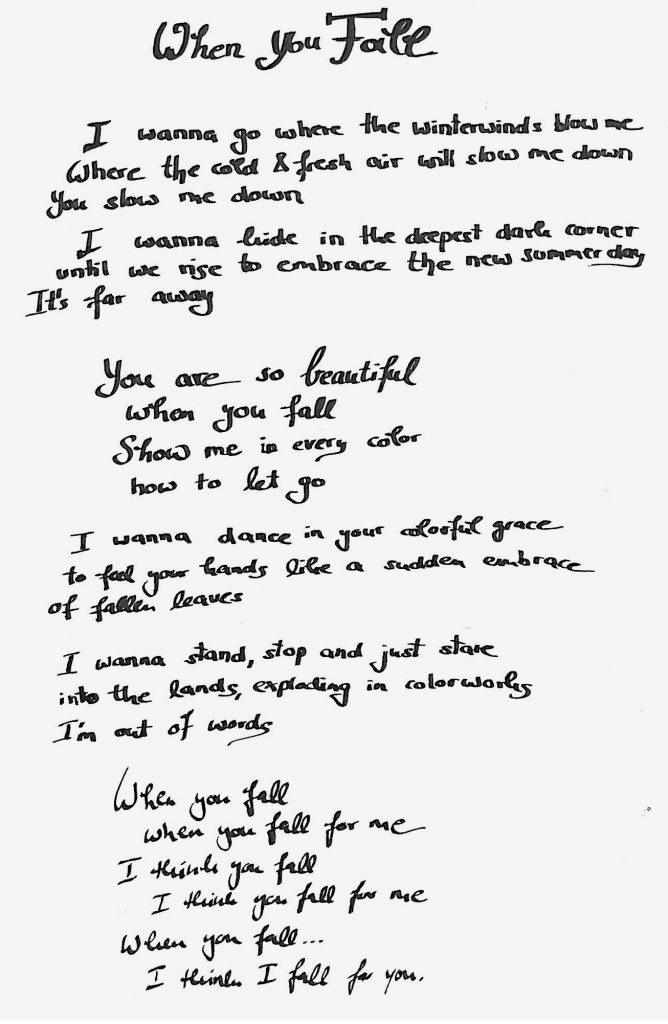 When you Fall
I wanna go where the winterwinds blow me
Where the cold & fresh air will slow me down
You slow me down
I wanna hide in the deepest dark corner
until we rise to embrace the new summer day
It's far away
You are so beautiful
when you fall
Show me in every color
how to let go
I wanna dance in your colorful grace
to feel your hands like a sudden embrace
of fallen leaves
I wanna stand, stop and just stare
into the lands, exploding in colorworks
I'm out of words
When you fall
when you fall for me
I think you fall
I think you fall for me
When you fall...
I think I fall for you.